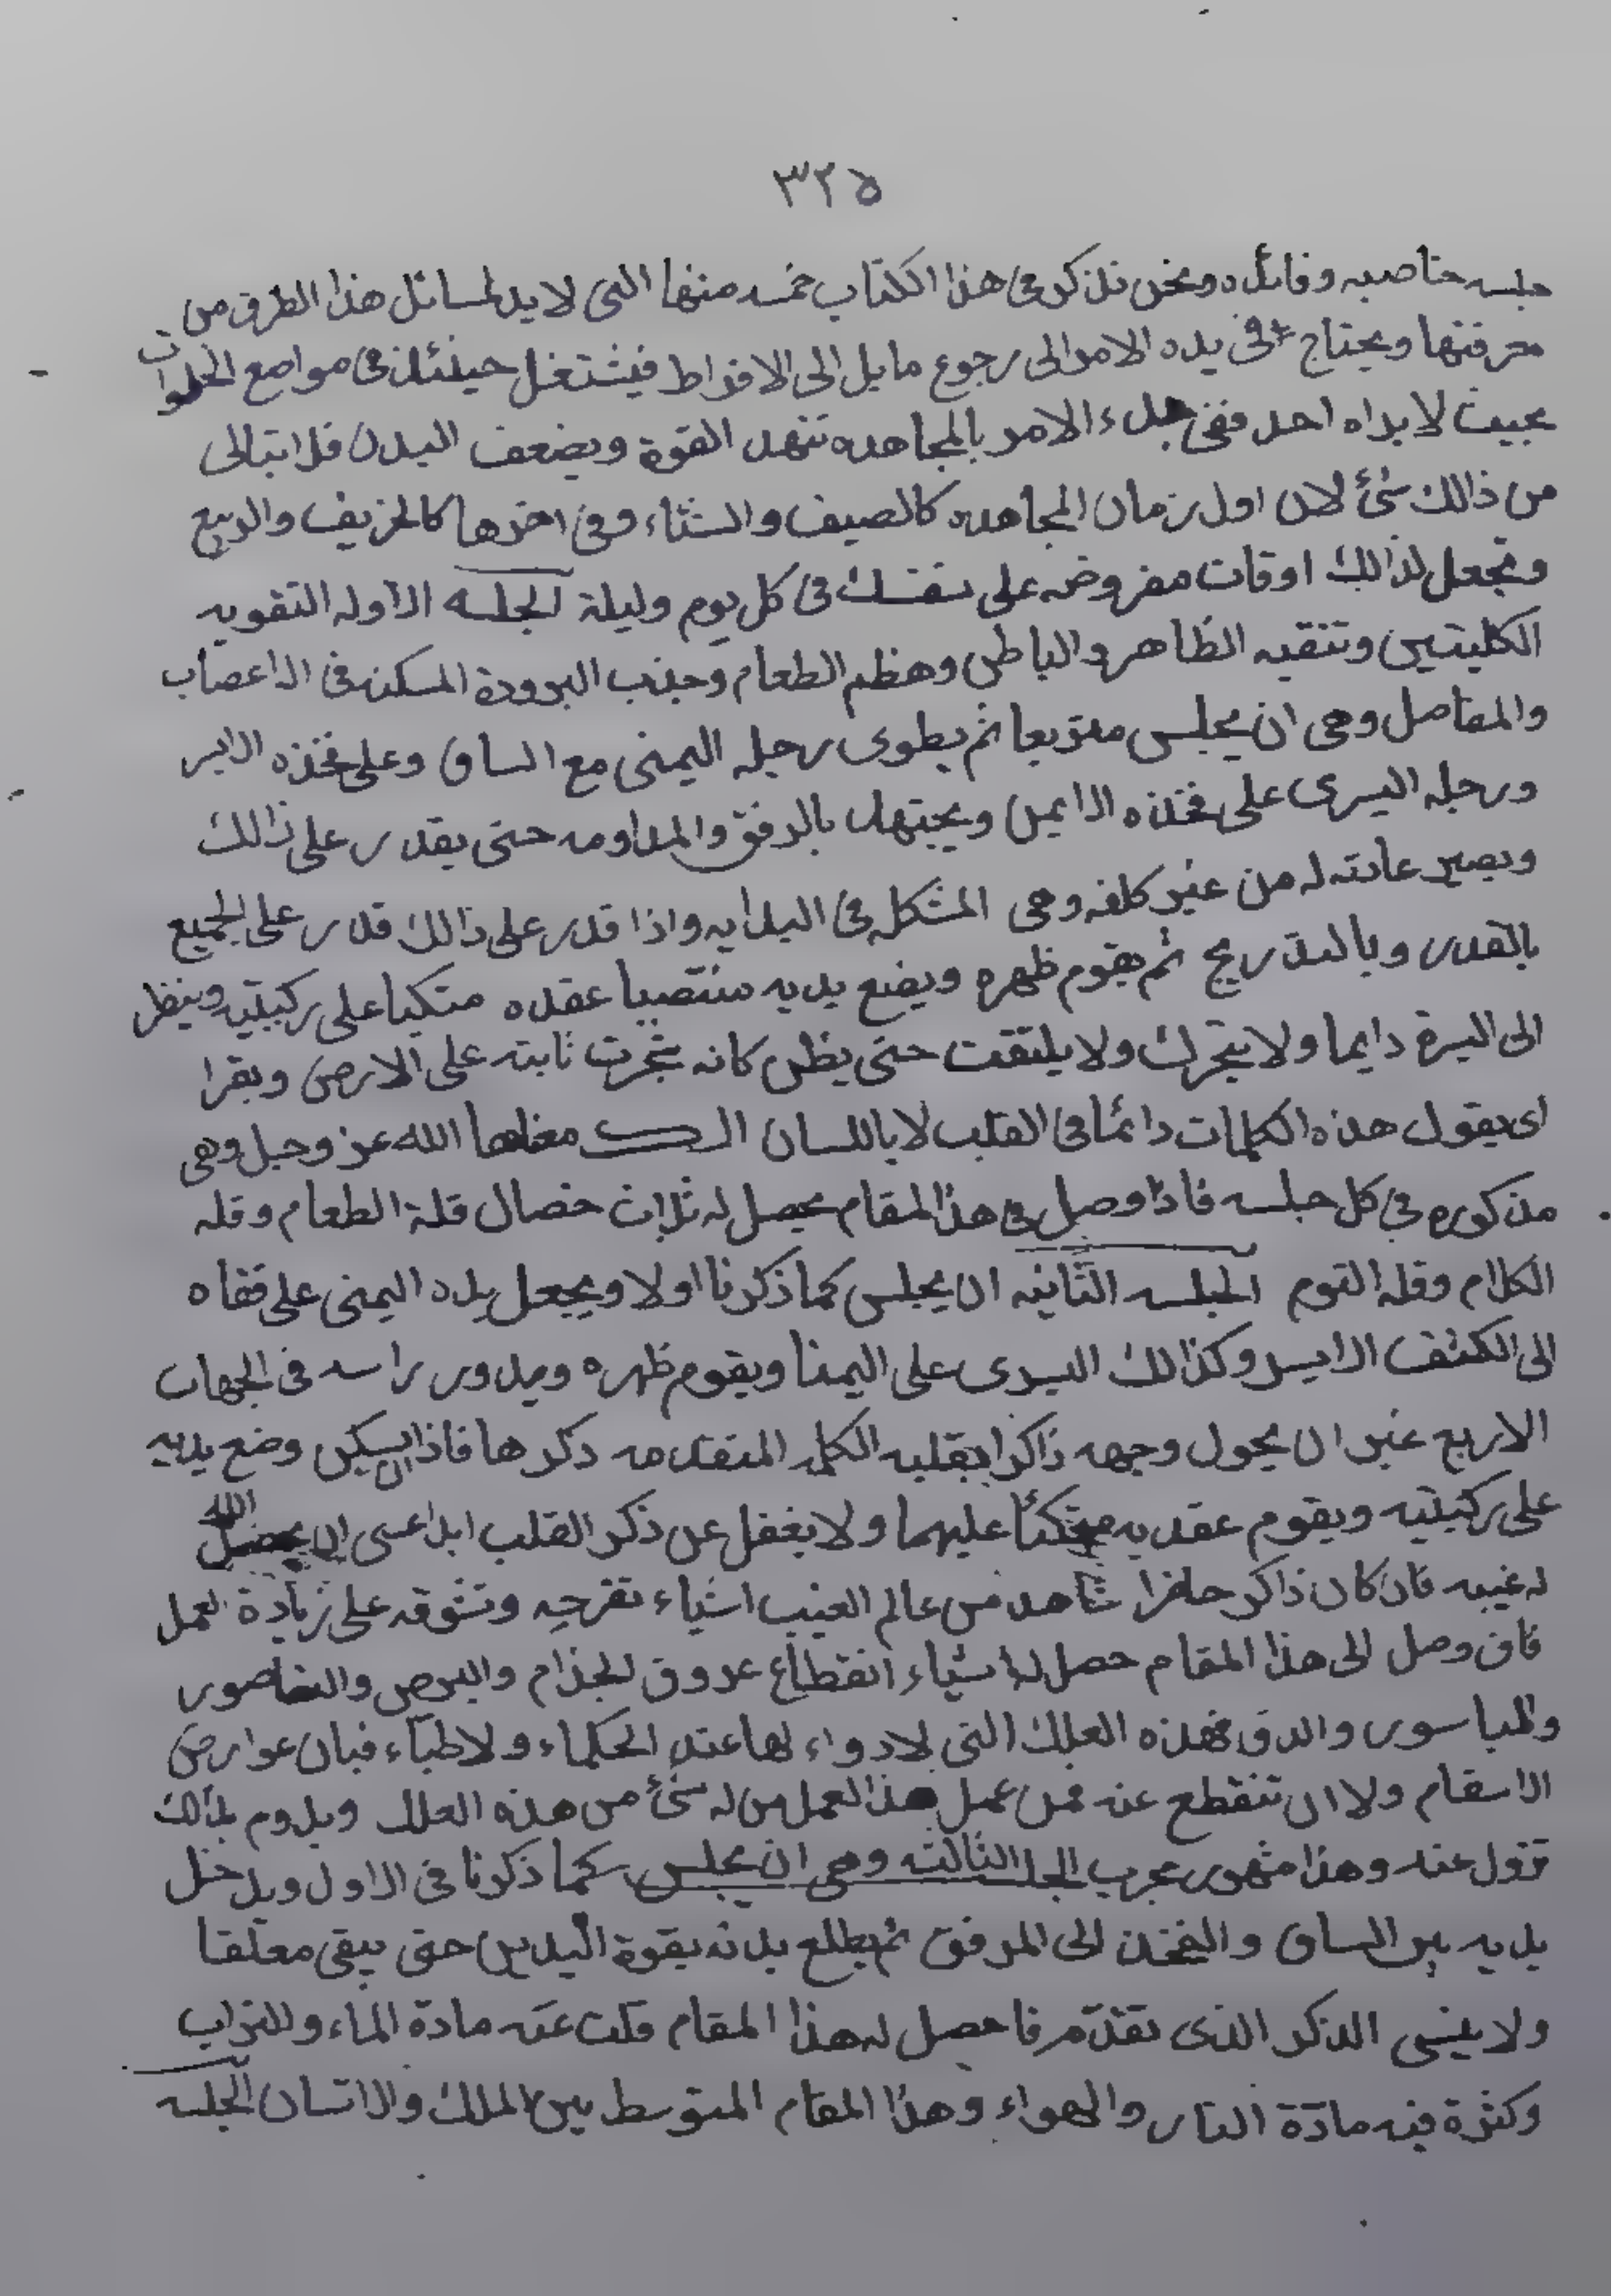 ٣٢٥
جلسه خاصيه وفائده ونحن نذكر فى هذا الكتاب خمسه منها التى لابد لمسائل هذا الطرق من
معرفتها ويحتاج فى بده الامر الى رجوع مايل الى الافراط فيشتغل حينئذ فى مواضع الخلوات
بحيث لايراه احد ففى بدء الامر بالمجاهده تنهد القوة ويضعف البدن فلا تبالى
من ذالك شئ لان اول زمان المجاهده كالصيف والشتاء وفى اخرها كالخريف والربيع
وتجعل لذالك اوقات مفروضه على نفسك فى كل يوم وليلة الجلسه الاوله التقويه
الكليتين وتنقيه الظاهر والباطن وهظم الطعام وجذب البرودة المسكنه فى الاعصاب
والمفاصل وهى ان يجلس متربعا ثم يطوى رجله اليمنى مع الساق وعلى فخذه الايسر
ورجله اليسرى على فخذه الايمن ويجتهد بالرفق والمداومه حتى يقدر على ذالك
ويصير عادته له من غير كلفه وهى المشكل فى البدايه واذا قدر على ذالك قدر على الجميع
بالقدر وبالتدريج ثم يقوم ظهره ويضع يديه منتصبا عقده متكيا على ركبتيه وينظر
الى اليسرة دايما ولا يتحرك ولا يلتفت حتى يظن كانه شجرت ثابته على الارض ويقرا
اى يقول هذه الكلمات دائما فى القلب لا باللسان معناها الله عز وجل وهى
مذكوره فى كل جلسه فاذا وصل فى هذا المقام يحصل له ثلاث خصال قلة الطعام وقله
الكلام وقله النوم الجلسه الثانيه ان يجلس كما ذكرنا اولا ويجعل يده اليمنى على قفاه
الى الكتف الايسر وكذالك اليسرى على اليمنا ويقوم ظهره ويدور راسه فى الجهات
الاربع غير ان يحول وجهه ذاكرا بقلبه الكلمه المتقدمه ذكرها فاذا سكن وضع يديه
على ركبتيه ويقوم عقديه متكئا عليهما ولا يغفل عن ذكر القلب ابدا عسى ان يحصل الله
له غيبه فان كان ذاكر حاضرا شاهد من عالم الغيب اشياء تفرحه وتشوقه على زيادة العمل
فان وصل الى هذا المقام حصل له اشياء انقطاع عروق الجذام والبرص والنناصور
والباسور والدق فهذه العلل التى لادواء لها عند الحكماء ولاطباء فبان عوارض
الاسقام ولا ان تنقطع عنه فمن عمل هذا العمل من له شئ من هذه العلل ويدوم بذالك
تزول عنه وهذا مشهور مجرب الجلسه الثالثه وهى ان يجلس كما ذكرنا فى الاول ويدخل
يديه بين الساق والفخذ الى المرفق ثم يطلع بدنه بقوة اليدين حتى يبقى معلقا
ولا ينسى الذكر الذى تقدم فاحصل له هذا المقام قلت عنه مادة الماء والتراب
وكثرة فيه مادة النار والهواء وهذا المقام المتوسط بين الملك والانسان الجلسه